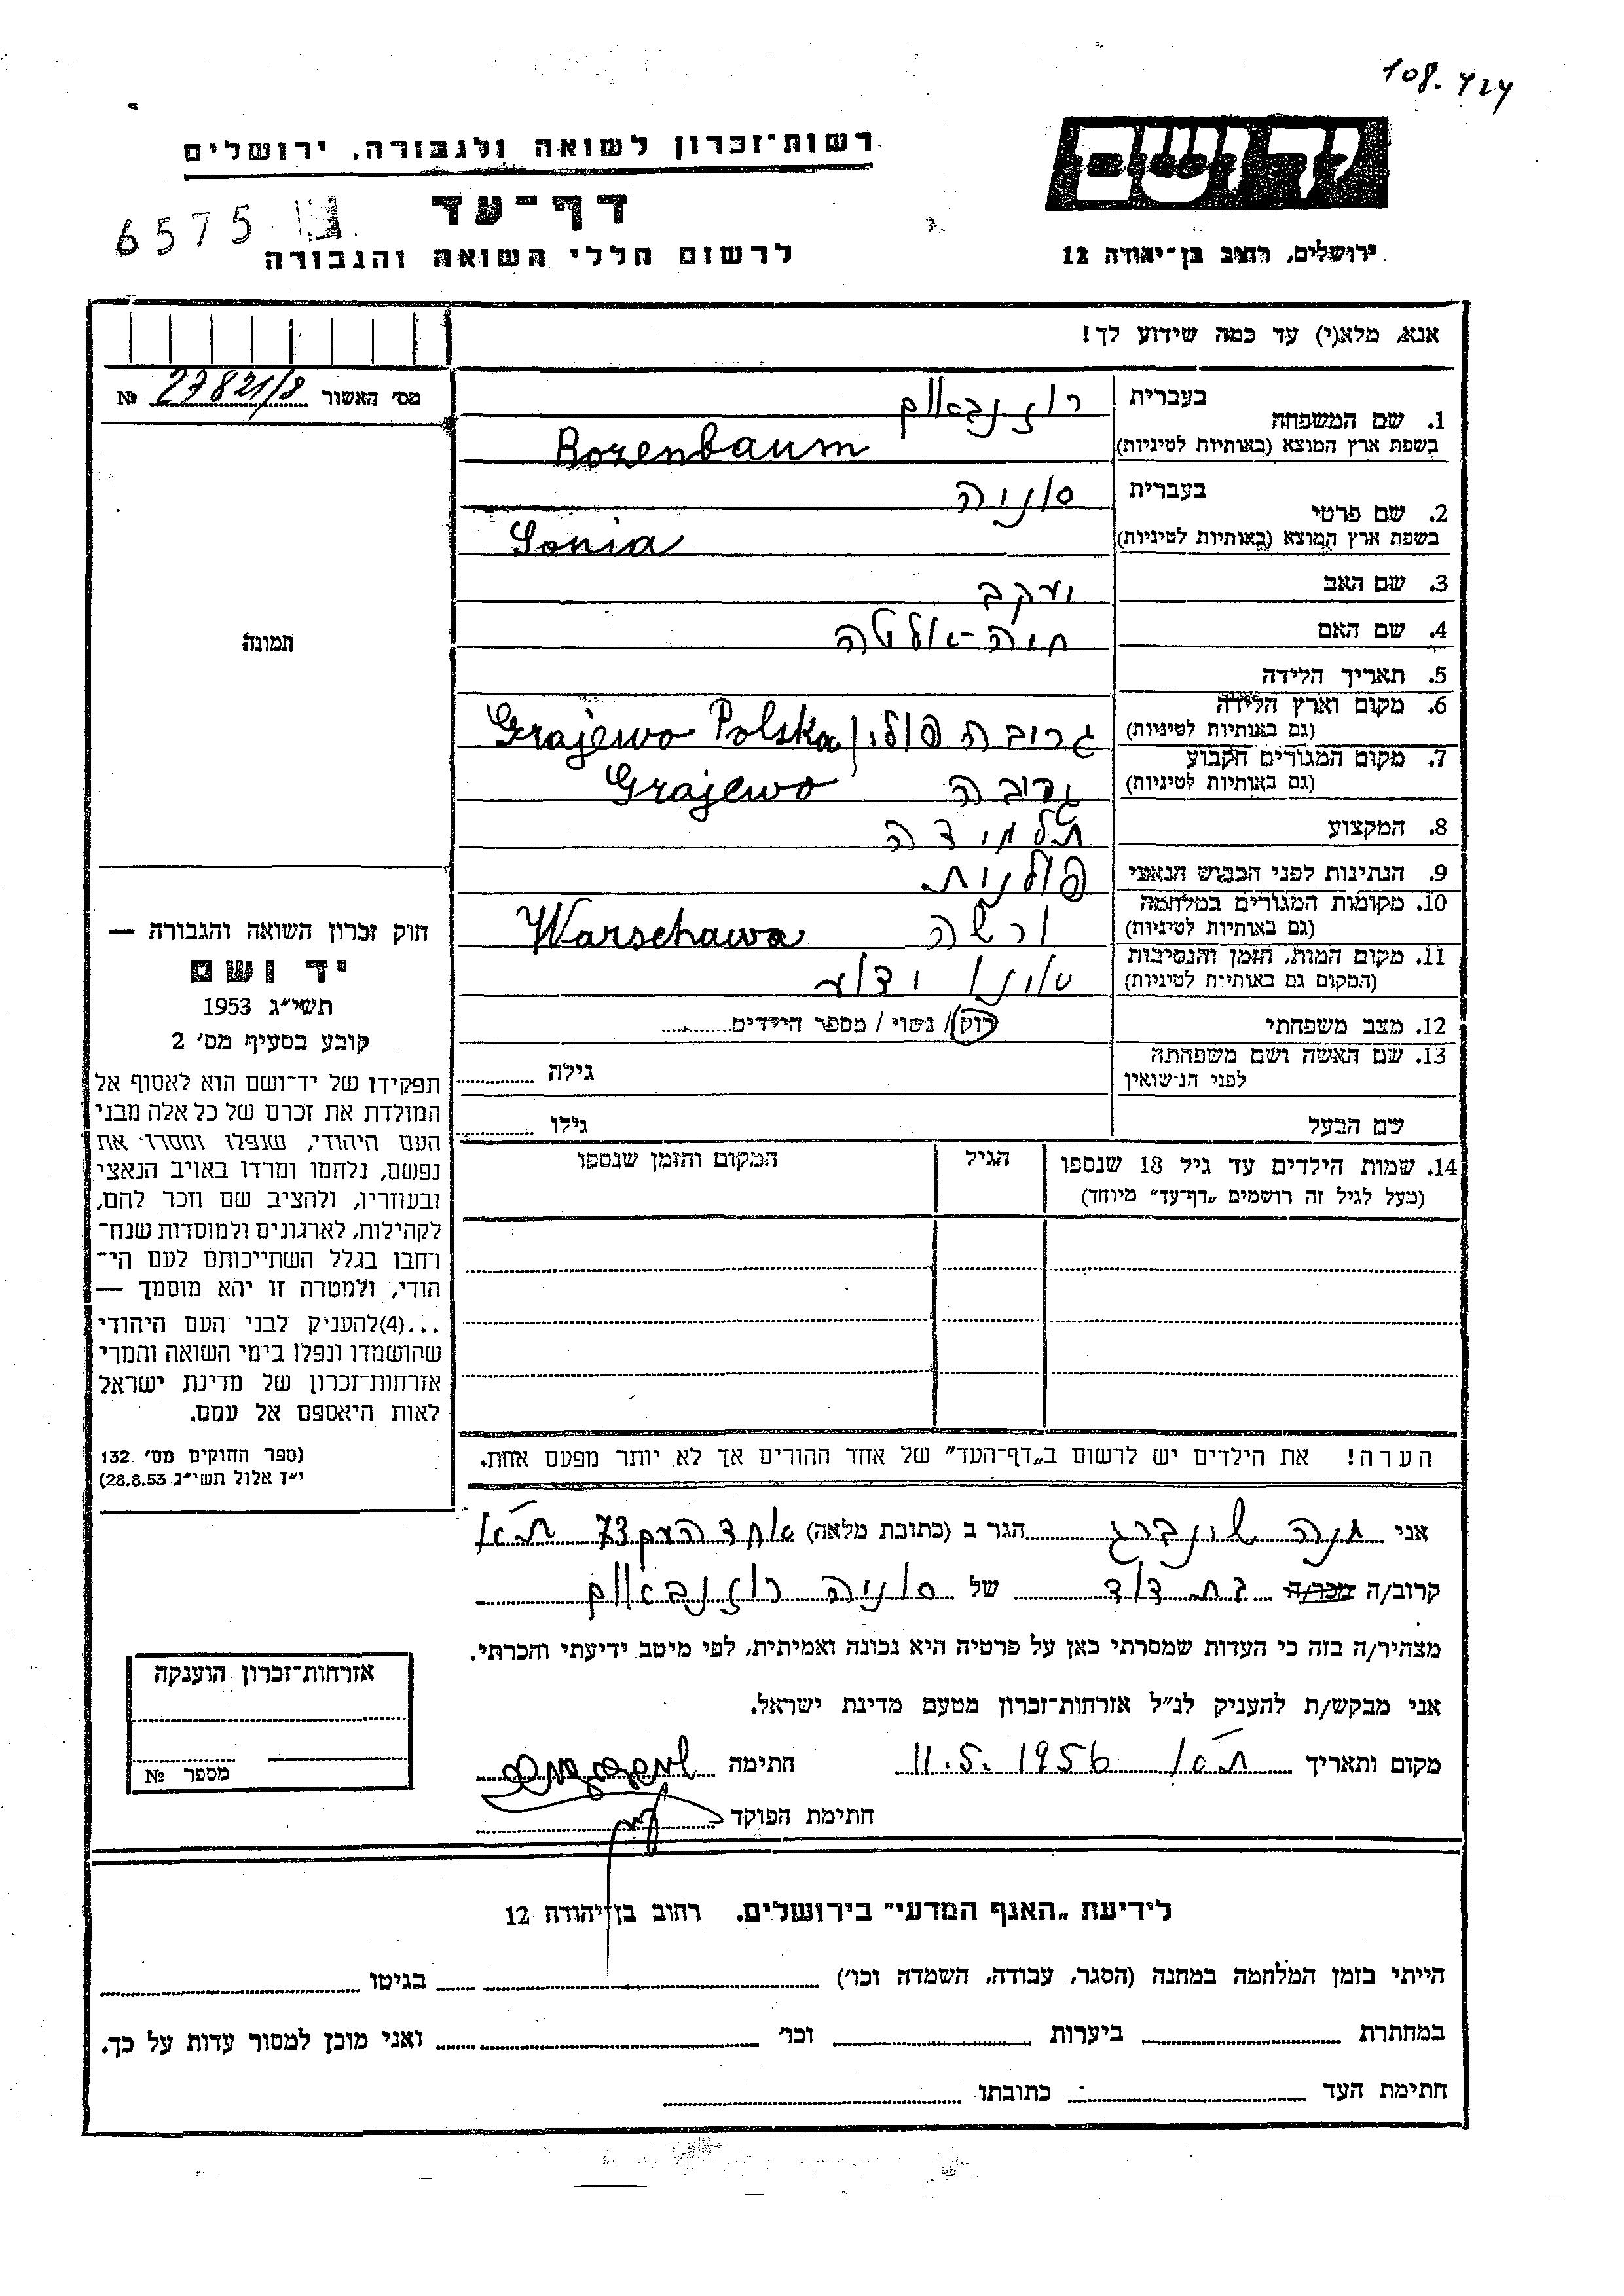 108. 424
רשות־זכרון לשואה ולגבורה, ירושלים
דף־עד
6575
לרשום חללי השואה והגבורה
ירושלים, רחוב בן־יהודה 12
אנא, מלא(י) עד כמה שידוע לך!
מס׳ האשור 27821/8 №
1. שם המשפחה
בעברית רוזנבאום
בשפת ארץ המוצא (באותיות לטיניות) Rozenbaum
2. שם פרטי
בעברית סוניה
בשפת ארץ המוצא (באותיות לטיניות) Sonia
3. שם האב יעקב
4. שם האם חיה-אלטה
5. תאריך הלידה
6. מקום וארץ הלידה
(גם באותיות לטיניות) גריבה פולין Grajewo Polska
7. מקום המגורים הקבוע
(גם באותיות לטיניות) גריבה Grajewo
8. המקצוע תלמידה
9. הנתינות לפני הכבוש הנאצי פולנית
10. מקומות המגורים במלחמה
(גם באותיות לטיניות) ורשה Warschawa
11. מקום המות, הזמן והנסיבות
(המקום גם באותיות לטיניות) אינו ידוע
12. מצב משפחתי רוק / נשוי / מספר הילדים
13. שם האשה ושם משפחתה
לפני הנישואין גילה
שם הבעל גילו
14. שמות הילדים עד גיל 18 שנספו
(מעל לגיל זה רושמים „דף־עד״ מיוחד)
הגיל
המקום והזמן שנספו
הערה! את הילדים יש לרשום ב„דף־העד״ של אחד ההורים אך לא יותר מפעם אחת.
תמונה
חוק זכרון השואה והגבורה —
יד ושם
תשי״ג 1953
קובע בסעיף מס׳ 2
תפקידו של יד־ושם הוא לאסוף אל
המולדת את זכרם של כל אלה מבני
העם היהודי, שנפלו ומסרו את
נפשם, נלחמו ומרדו באויב הנאצי
ובעוזריו, ולהציב שם וזכר להם,
לקהילות, לארגונים ולמוסדות שנח־
רחבו בגלל השתייכותם לעם הי־
הודי, ולמטרה זו יהא מוסמך —
...(4)להעניק לבני העם היהודי
שהושמדו ונפלו בימי השואה והמרי
אזרחות־זכרון של מדינת ישראל
לאות היאספם אל עמם.
(ספר החוקים מס׳ 132
י״ז אלול תשי״ג 28.8.53)
אני חנה שונברג הגר ב (כתובת מלאה) אחד העם 73 ת״א
קרוב/ה מכר/ה בת דוד של סוניה רוזנבאום
מצהיר/ה בזה כי העדות שמסרתי כאן על פרטיה היא נכונה ואמיתית, לפי מיטב ידיעתי והכרתי.
אני מבקש/ת להעניק לנ״ל אזרחות־זכרון מטעם מדינת ישראל.
מקום ותאריך ת״א 11.5.1956 חתימה
חתימת הפוקד
אזרחות־זכרון הוענקה
מספר №
לידיעת „האגף המדעי״ בירושלים, רחוב בן־יהודה 12
הייתי בזמן המלחמה במחנה (הסגר, עבודה, השמדה וכו׳) בגיטו
במחתרת ביערות וכו׳ ואני מוכן למסור עדות על כך.
חתימת העד כתובתו